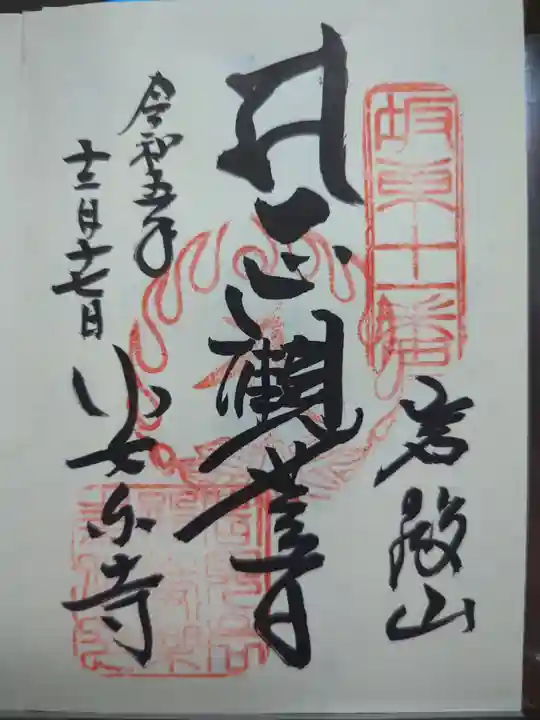 坂東十一番
岩殿山
正観世音
安楽寺
令和五年
十二月十七日